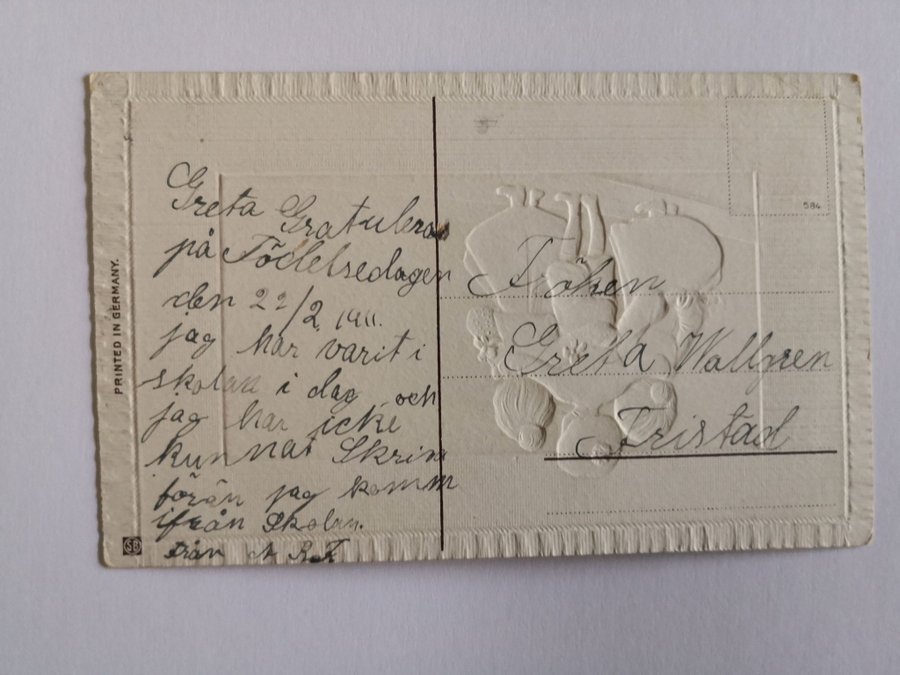 Greta Gratuleras
på Födelsedagen
den 22/2 1911.
jag har varit i
skolan i dag och
jag har icke
kunnat Skriva
förän jag komm
ifrån Skolan.
från A R.F
Fröken
Greta Wallgren
Fristad
584
PRINTED IN GERMANY.
SB